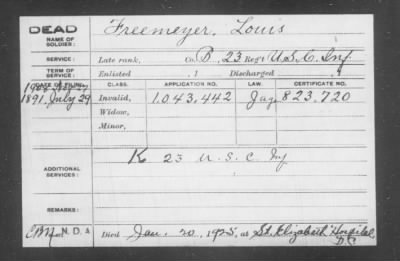 DEAD
NAME OF SOLDIER:
Freemeyer, Louis
SERVICE:
Late rank, Co. B, 23 Reg't U.S.C. Inf.
TERM OF SERVICE:
Enlisted , 1 Discharged , 1
DATE OF FILING. CLASS. APPLICATION NO. LAW. CERTIFICATE NO.
1891, July 29 Invalid, 1.043,442 823,720
Widow,
Minor,
ADDITIONAL SERVICES:
K 23 U.S.C. Inf
REMARKS:
N.D.A Died Jan. 20, 1925, at St. Elizabeth Hospital, D.C.